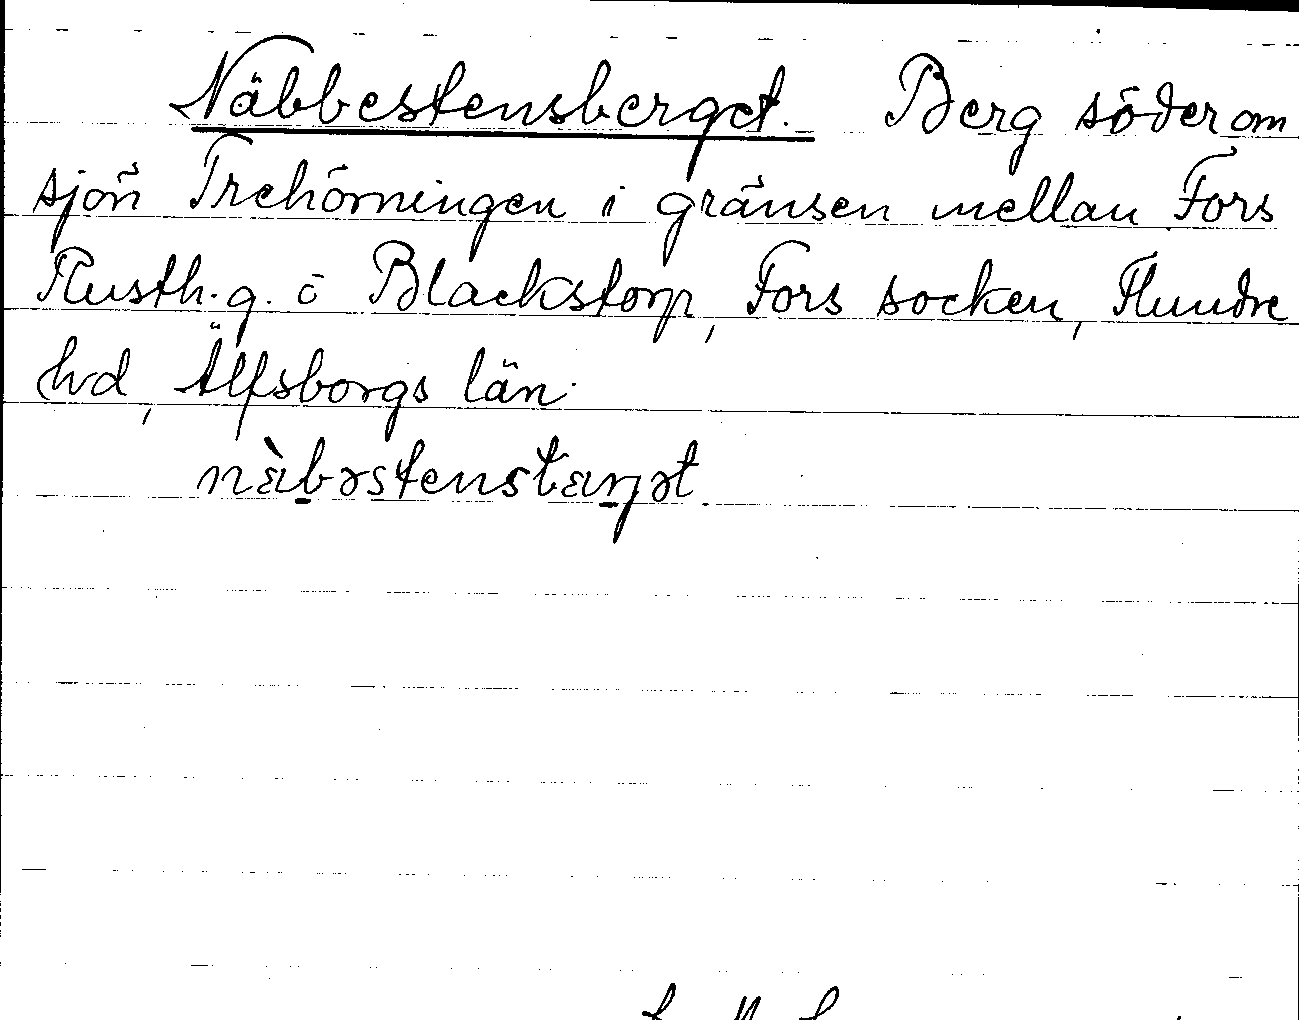 Näbbestensberget. Berg söder om
sjön Trehörningen i gränsen mellan Fors
Rusth.g. o Blackstorp, Fors socken, Flundre
hd, Älfsborgs län.